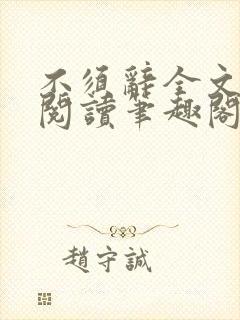 不須辭全文
閱讀筆趣閣
趙守誠